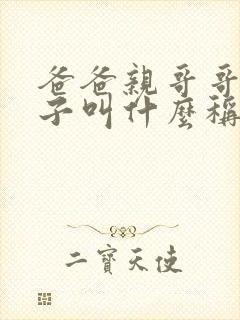 爸爸親哥哥
子叫什麼稱
二寶天使